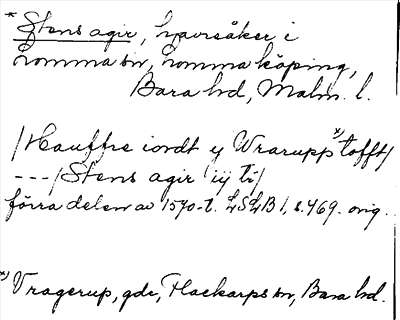 * Stens agir, havsåker i
Lomma sn, Lomma köping,
Bara hd, Malm. l.
/Hauffre iordt y Wrarupp *) tofft/
---/Stens agir iÿ ti/
förra delen av 1570-t. LSLB 1, s. 469. orig.
*) Vragerup, gdr, Flackarps sn, Bara hd.